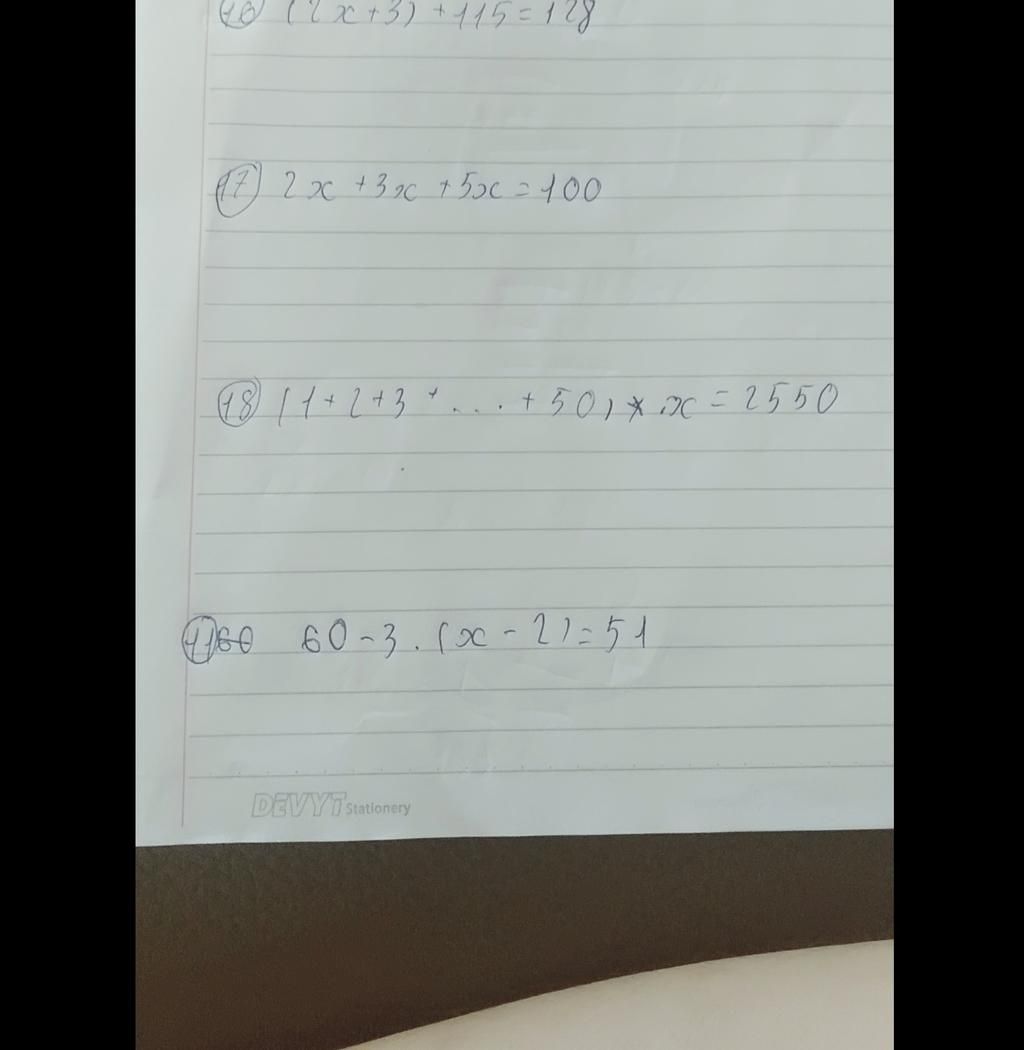 16 (2x+3) + 115 = 128
17 2x + 3x + 5x = 100
18 (1 + 2 + 3 + ... + 50) * x = 2550
60 - 3 . (x - 2) = 51
DEVYT Stationery